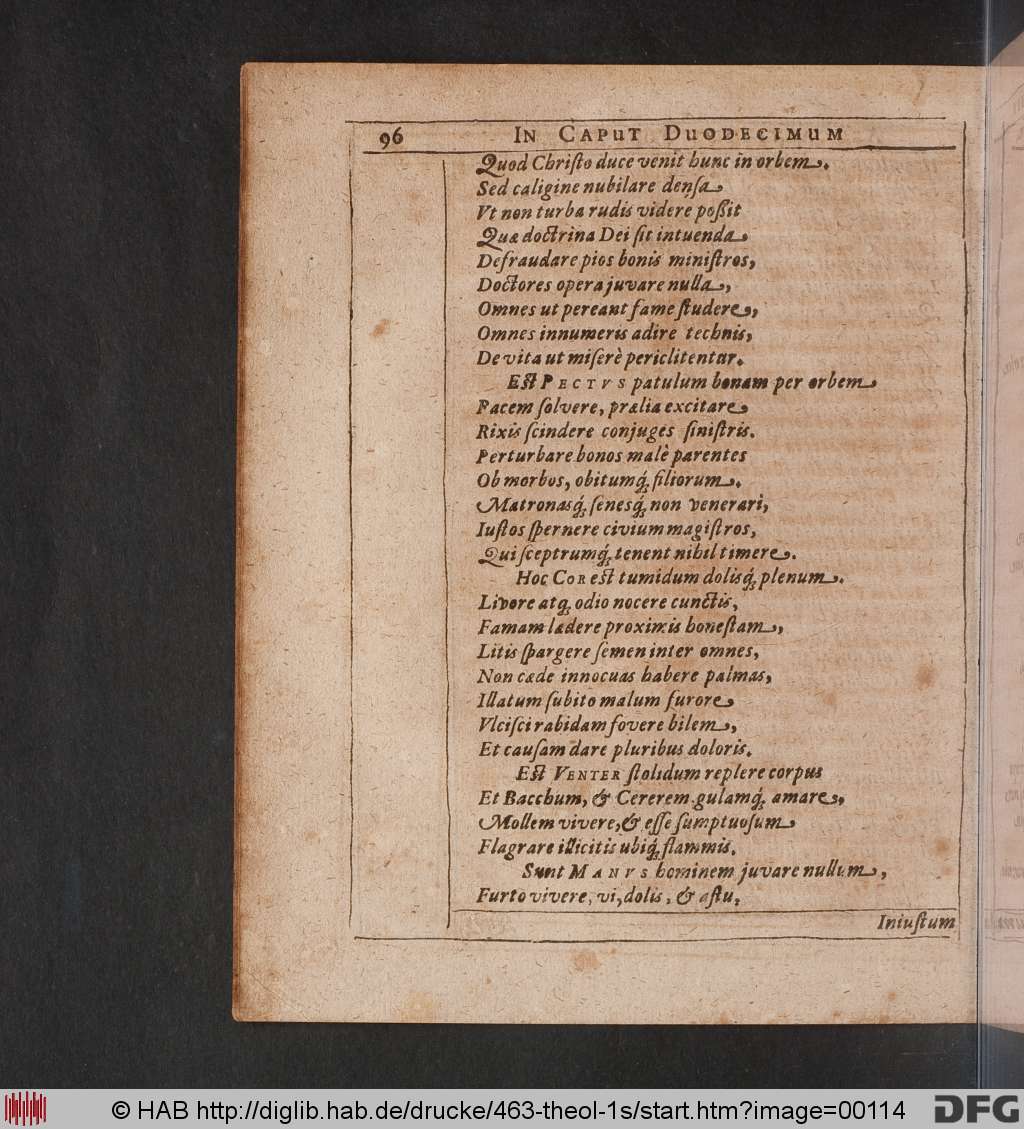 96 IN CAPUT DUODECIMUM
Quod Chriſto duce venit hunc in orbem.
Sed caligine nubilare denſa
Vt non turba rudis videre poſſit
Quæ doctrina Dei ſit intuenda
Defraudare pios bonis miniſtros,
Doctores opera juvare nulla,
Omnes ut pereant fame ſtudere,
Omnes innumeris adire technis,
De vita ut miſerè periclitentur.
Eſt PECTVS patulum bonam per orbem
Pacem ſolvere, prælia excitare
Rixis ſcindere conjuges ſiniſtris.
Perturbare bonos malè parentes
Ob morbos, obitumq́; filiorum.
Matronasq́; ſenesq́; non venerari,
Iuſtos ſpernere civium magiſtros,
Qui ſceptrumq́; tenent nihil timere.
Hoc COR eſt tumidum dolisq́; plenum.
Livore atq; odio nocere cunctis,
Famam lædere proximis honeſtam,
Litis ſpargere ſemen inter omnes,
Non cæde innocuas habere palmas,
Illatum ſubito malum furore
Vlciſci rabidam fovere bilem,
Et cauſam dare pluribus doloris.
Eſt VENTER ſtolidum replere corpus
Et Bacchum, & Cererem gulamq́; amare,
Mollem vivere, & eſſe ſumptuoſum
Flagrare illicitis ubiq́; flammis.
Sunt MANVS hominem juvare nullum,
Furto vivere, vi, dolis, & aſtu,
Iniuſtum
© HAB http://diglib.hab.de/drucke/463-theol-1s/start.htm?image=00114
DFG